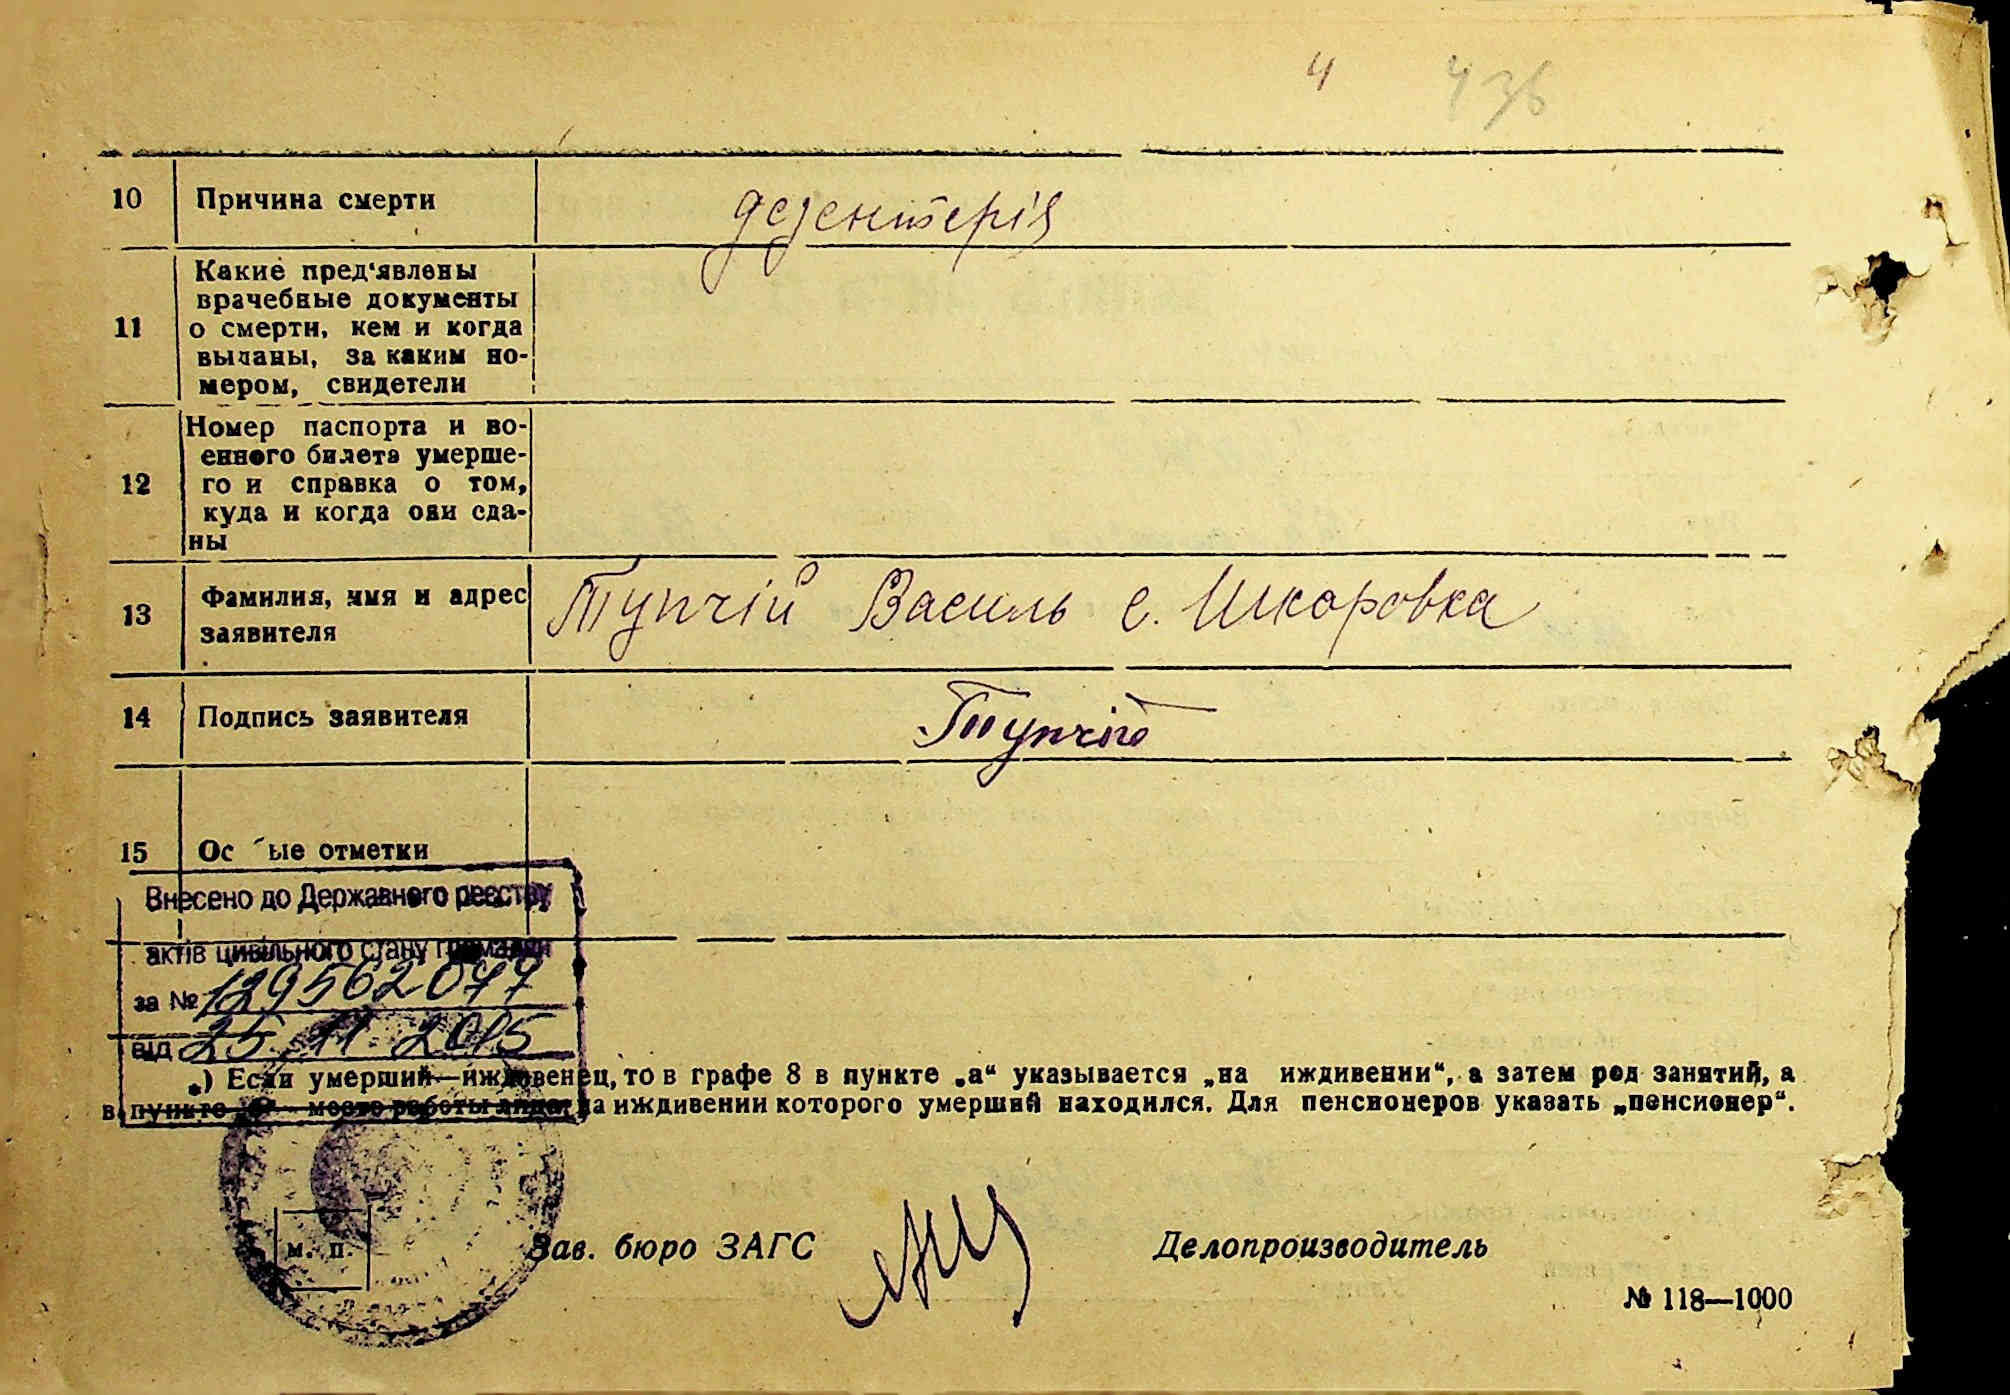 4 43б
10 Причина смерти дезентерія
11 Какие пред‘явлены
врачебные документы
о смерти, кем и когда
выданы, за каким но-
мером, свидетели
12 Номер паспорта и во-
енного билета умерше-
го и справка о том,
куда и когда они сда-
ны
13 Фамилия, имя и адрес
заявителя
Тупчій Василь с. Шкаровка
14 Подпись заявителя Тупчій
15 Ос ые отметки
Внесено до Державного реєстру
актів цивільного стану громадян
за № 129562077
від 25. 11. 2015
*) Если умерший—иждивенец, то в графе 8 в пункте „а“ указывается „на иждивении“, а затем род занятий, а
в пункте место работы лица, на иждивении которого умерший находился. Для пенсионеров указать „пенсионер“.
М. П.
Зав. бюро ЗАГС Делопроизводитель
№ 118—1000